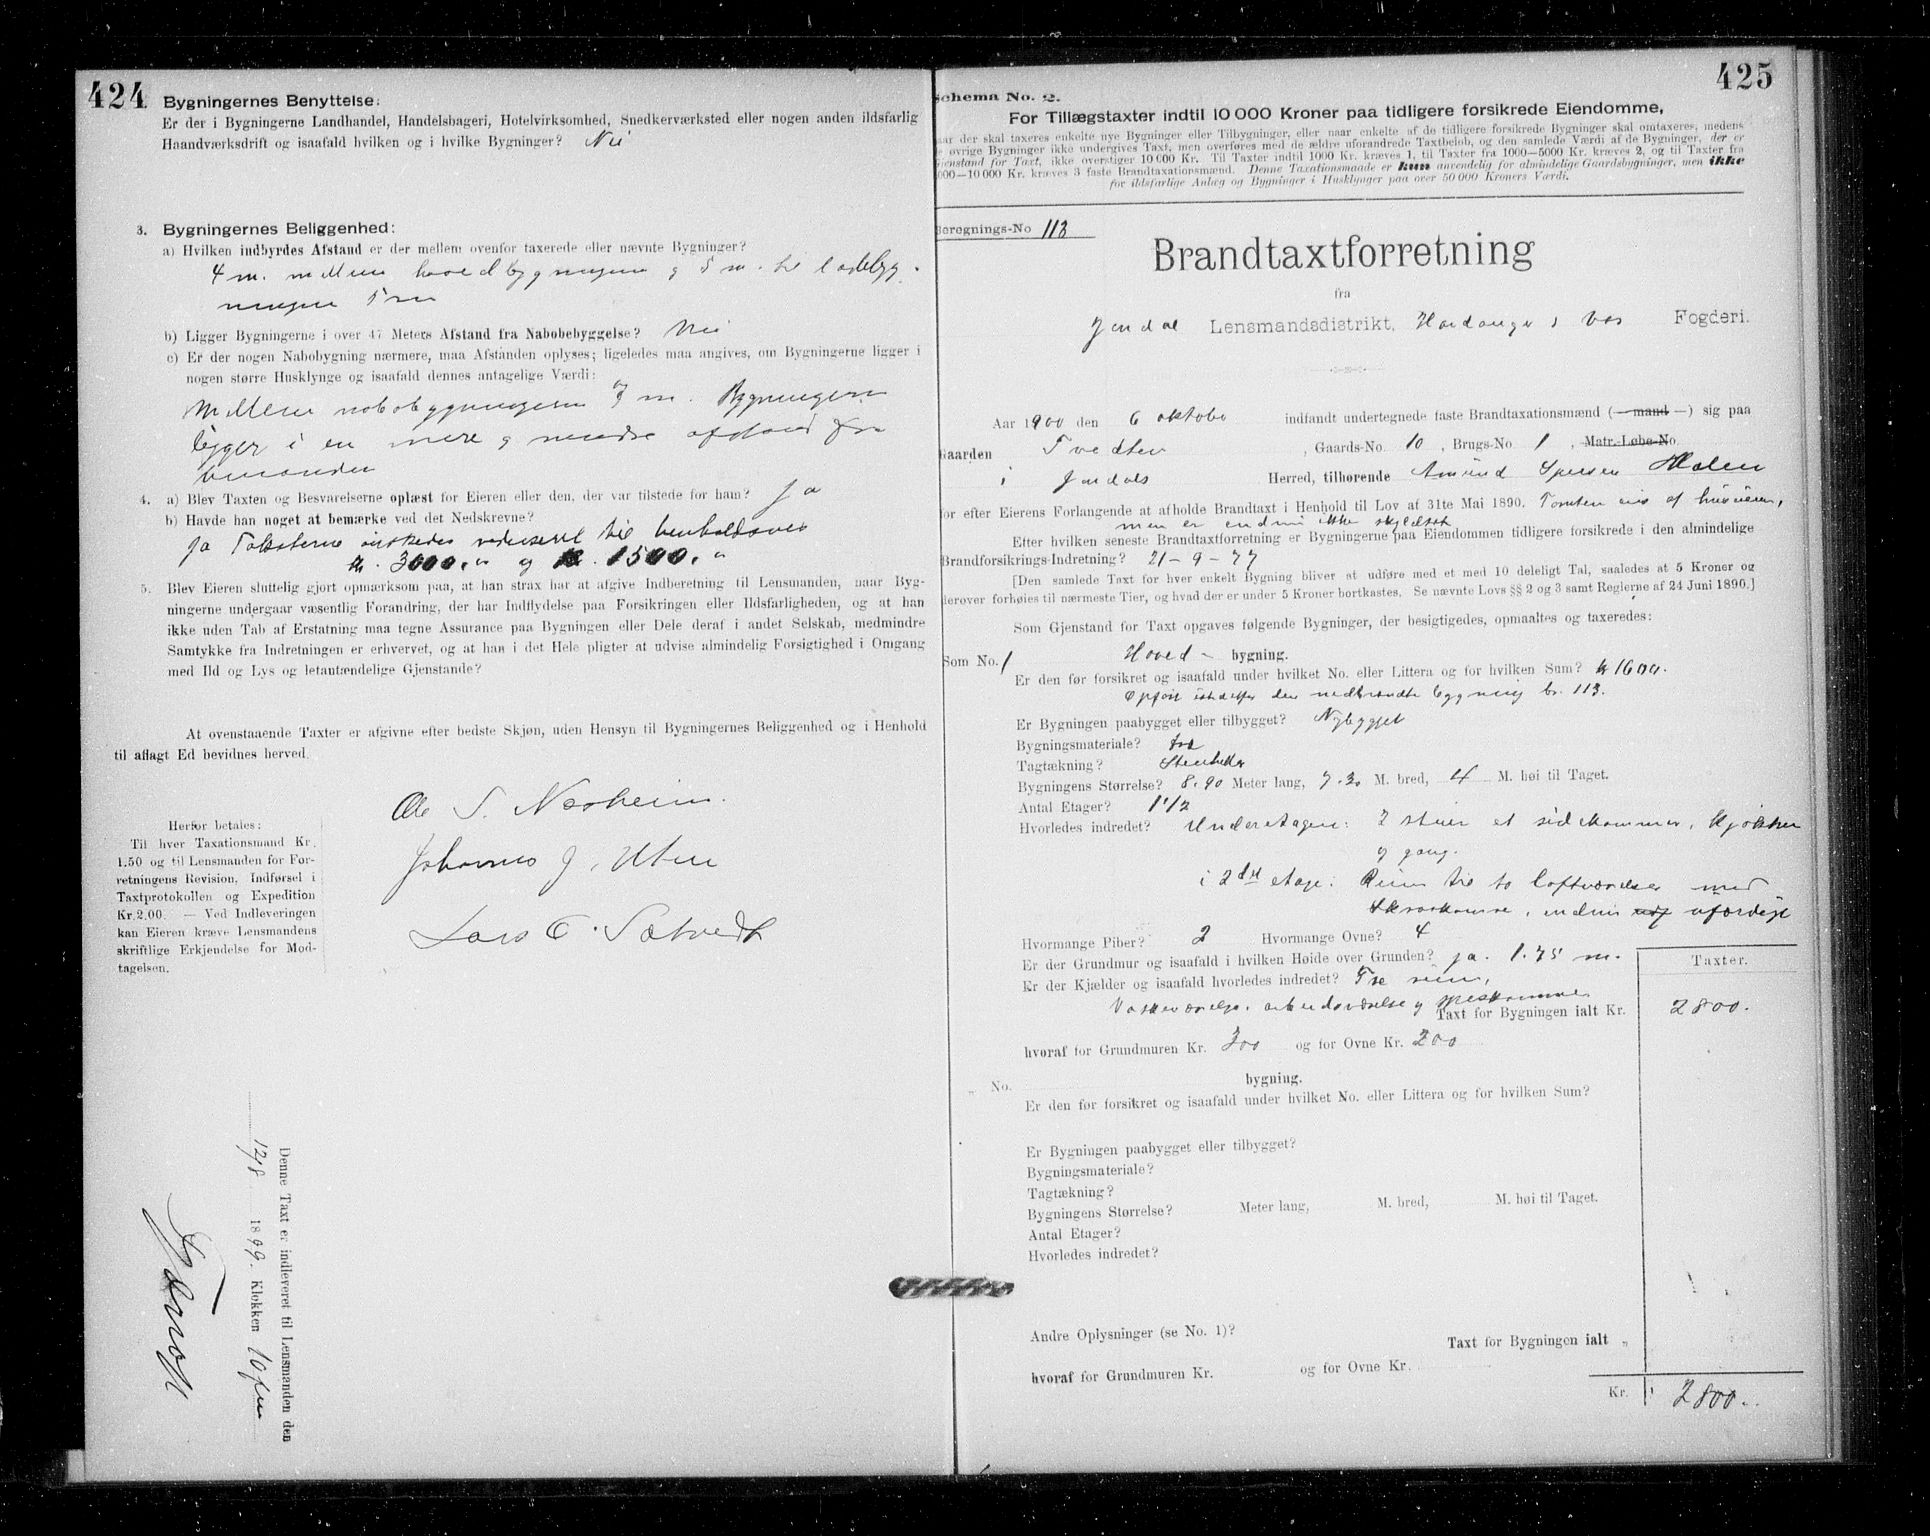 424
Bygningernes Benyttelse:
Er der i Bygningerne Landhandel, Handelsbageri, Hotelvirksomhed, Snedkerværksted eller nogen anden ildsfarlig
Haandværksdrift og isaafald hvilken og i hvilke Bygninger? Nei
3. Bygningernes Beliggenhed:
a) Hvilken indbyrdes Afstand er der mellem ovenfor taxerede eller nævnte Bygninger?
4 m. mellem hovedbygningerne og 5 m. til ladebyg-
ningen 5 m
b) Ligger Bygningerne i over 47 Meters Afstand fra Nabobebyggelse? Nei
c) Er der nogen Nabobygning nærmere, maa Afstanden oplyses; ligeledes maa angives, om Bygningerne ligger i
nogen større Husklynge og isaafald dennes antagelige Værdi:
Mellem nabobygningerne 7 m. Bygningerne
ligger i en mere og mindre afstand fra
hinanden
4. a) Blev Taxten og Besvarelserne oplæst for Eieren eller den, der var tilstede for ham? Ja
b) Havde han noget at bemærke ved det Nedskrevne?
Ja Taksterne ønskedes reduseret til henholdsvis
kr. 3000," og kr. 1500,"
5. Blev Eieren sluttelig gjort opmærksom paa, at han strax har at afgive Indberetning til Lensmanden, naar Byg-
ningerne undergaar væsentlig Forandring, der har Indflydelse paa Forsikringen eller Ildsfarligheden, og at han
ikke uden Tab af Erstatning maa tegne Assurance paa Bygningen eller Dele deraf i andet Selskab, medmindre
Samtykke fra Indretningen er erhvervet, og at han i det Hele pligter at udvise almindelig Forsigtighed i Omgang
med Ild og Lys og letantændelige Gjenstande?
At ovenstaaende Taxter er afgivne efter bedste Skjøn, uden Hensyn til Bygningernes Beliggenhed og i Henhold
til aflagt Ed bevidnes herved.
Ole S. Nesheim.
Johannes J. Utne
Lars O. Sætvedt
Herfor betales:
Til hver Taxationsmand Kr.
1.50 og til Lensmanden for For-
retningens Revision, Indførsel i
Taxtprotokollen og Expedition
Kr. 2.00. — Ved Indleveringen
kan Eieren kræve Lensmandens
skriftlige Erkjendelse for Mod-
tagelsen.
Denne Taxt er indleveret til Lensmanden den
12/8 1899. Klokken 10 fm
425
Schema No. 2.
For Tillægstaxter indtil 10 000 Kroner paa tidligere forsikrede Eiendomme,
naar der skal taxeres enkelte nye Bygninger eller Tilbygninger, eller naar enkelte af de tidligere forsikrede Bygninger skal omtaxeres, medens
de øvrige Bygninger ikke undergives Taxt, men overføres med de ældre uforandrede Taxtbeløb, og den samlede Værdi af de Bygninger, der er
Gjenstand for Taxt, ikke overstiger 10 000 Kr. Til Taxter indtil 1000 Kr. kræves 1, til Taxter fra 1000—5000 Kr. kræves 2, og til Taxter fra
5000—10 000 Kr. kræves 3 faste Brandtaxationsmænd. Denne Taxationsmaade er kun anvendelig for almindelige Gaardsbygninger, men ikke
for ildsfarlige Anlæg og Bygninger i Husklynger paa over 50 000 Kroners Værdi.
Beregnings-No 113
Brandtaxtforretning
fra
Jondal Lensmandsdistrikt, Hardanger & Vos Fogderi.
Aar 1900 den 6 oktober indfandt undertegnede faste Brandtaxationsmænd (— mand —) sig paa
Gaarden Tvedten, Gaards-No. 10, Brugs-No. 1, Matr.-Løbe-No.
i Jondals Herred, tilhørende Amund Halen
for efter Eierens Forlangende at afholde Brandtaxt i Henhold til Lov af 31te Mai 1890. Tomten eies af huseieren,
men er endnu ikke skyldsat
Efter hvilken seneste Brandtaxtforretning er Bygningerne paa Eiendommen tidligere forsikrede i den almindelige
Brandforsikrings-Indretning? 21-9-77
[Den samlede Taxt for hver enkelt Bygning bliver at udføre med et med 10 deleligt Tal, saaledes at 5 Kroner og
derover forhøies til nærmeste Tier, og hvad der er under 5 Kroner bortkastes. Se nævnte Lovs §§ 2 og 3 samt Reglerne af 24 Juni 1890.]
Som Gjenstand for Taxt opgaves følgende Bygninger, der besigtigedes, opmaaltes og taxeredes:
Som No. 1 Hoved - bygning.
Er den før forsikret og isaafald under hvilket No. eller Littera og for hvilken Sum? kr 1600.
Opført istedetfor den nedbrændte bygning br. 113.
Er Bygningen paabygget eller tilbygget? Nybygget
Bygningsmateriale? træ
Tagtækning? Stenheller
Bygningens Størrelse? 8.90 Meter lang, 7.30 M. bred, 4 M. høi til Taget.
Antal Etager? 1 1/2
Hvorledes indredet? Underetagen: 2 stuer et sidekammer, kjøkken
og gang.
i 2den etage: Reien til to loftsværelser med
, endnu uferdigt
Hvormange Piber? 2 Hvormange Ovne? 4
Er der Grundmur og isaafald i hvilken Høide over Grunden? ja. 1.75 m.
Er der Kjælder og isaafald hvorledes indredet? Tre rum,
Vaskeværelse, arbeidsværelse og spiskammer
Taxt for Bygningen ialt Kr.
Taxter.
2800.
hvoraf for Grundmuren Kr. 300 og for Ovne Kr. 200
„ No. bygning.
Er den før forsikret og isaafald under hvilket No. eller Littera og for hvilken Sum?
Er Bygningen paabygget eller tilbygget?
Bygningsmateriale?
Tagtækning?
Bygningens Størrelse? Meter lang, M. bred, M. høi til Taget.
Antal Etager?
Hvorledes indredet?
Andre Oplysninger (se No. 1)?
Taxt for Bygningen ialt „
hvoraf for Grundmuren Kr. og for Ovne Kr.
Kr. 2800.